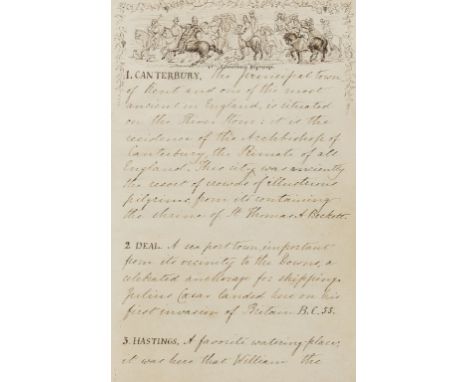 Canterbury Pilgrimage.
1. CANTERBURY, the principal town
of Kent and one of the most
ancient in England, is situated
on the River Stour: it is the
residence of the Archbishop of
Canterbury, the Primate of all
England. This city was anciently
the resort of crowds of illustrious
pilgrims from its containing
the shrine of St. Thomas A Beckett.
2 DEAL. A sea port town, important
from its vicinity to the Downs, a
celebrated anchorage for shipping.
Julius Cæsar landed here on his
first invasion of Britain B.C. 55.
3. HASTINGS, A favorite watering place;
it was here that William the